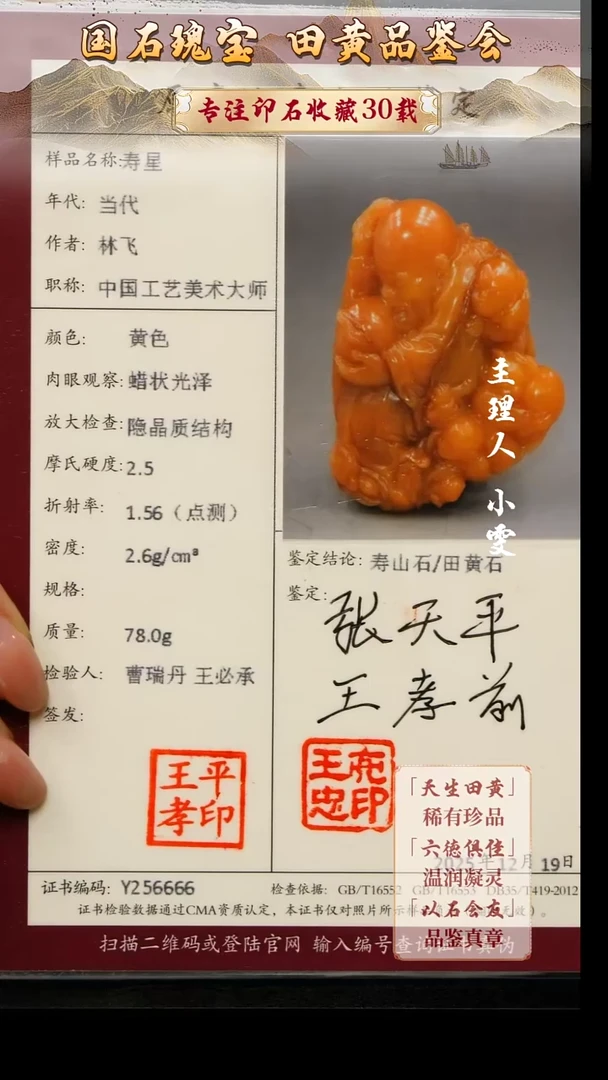 国石瑰宝 田黄品鉴会
专注印石收藏30载
定
样品名称:寿星
年代: 当代
作者: 林飞
职称: 中国工艺美术大师
颜色: 黄色
肉眼观察: 蜡状光泽
放大检查: 隐晶质结构
摩氏硬度: 2.5
折射率: 1.56（点测）
密度: 2.6g/cm³
规格:
质量: 78.0g
检验人: 曹瑞丹 王必承
签发:
主理人 小雯
鉴定结论: 寿山石/田黄石
鉴定:
张天平
王孝前
「天生田黄」
稀有珍品
「六德俱佳」
温润凝灵
「以石会友」
品鉴真章
2025年12月19日
证书编码: Y256666
检查依据: GB/T16552 GB/T16553 DB35/T419-2012
证书检验数据通过CMA资质认定，本证书仅对照片所示样
扫描二维码或登陆官网 输入编号查询证书真伪